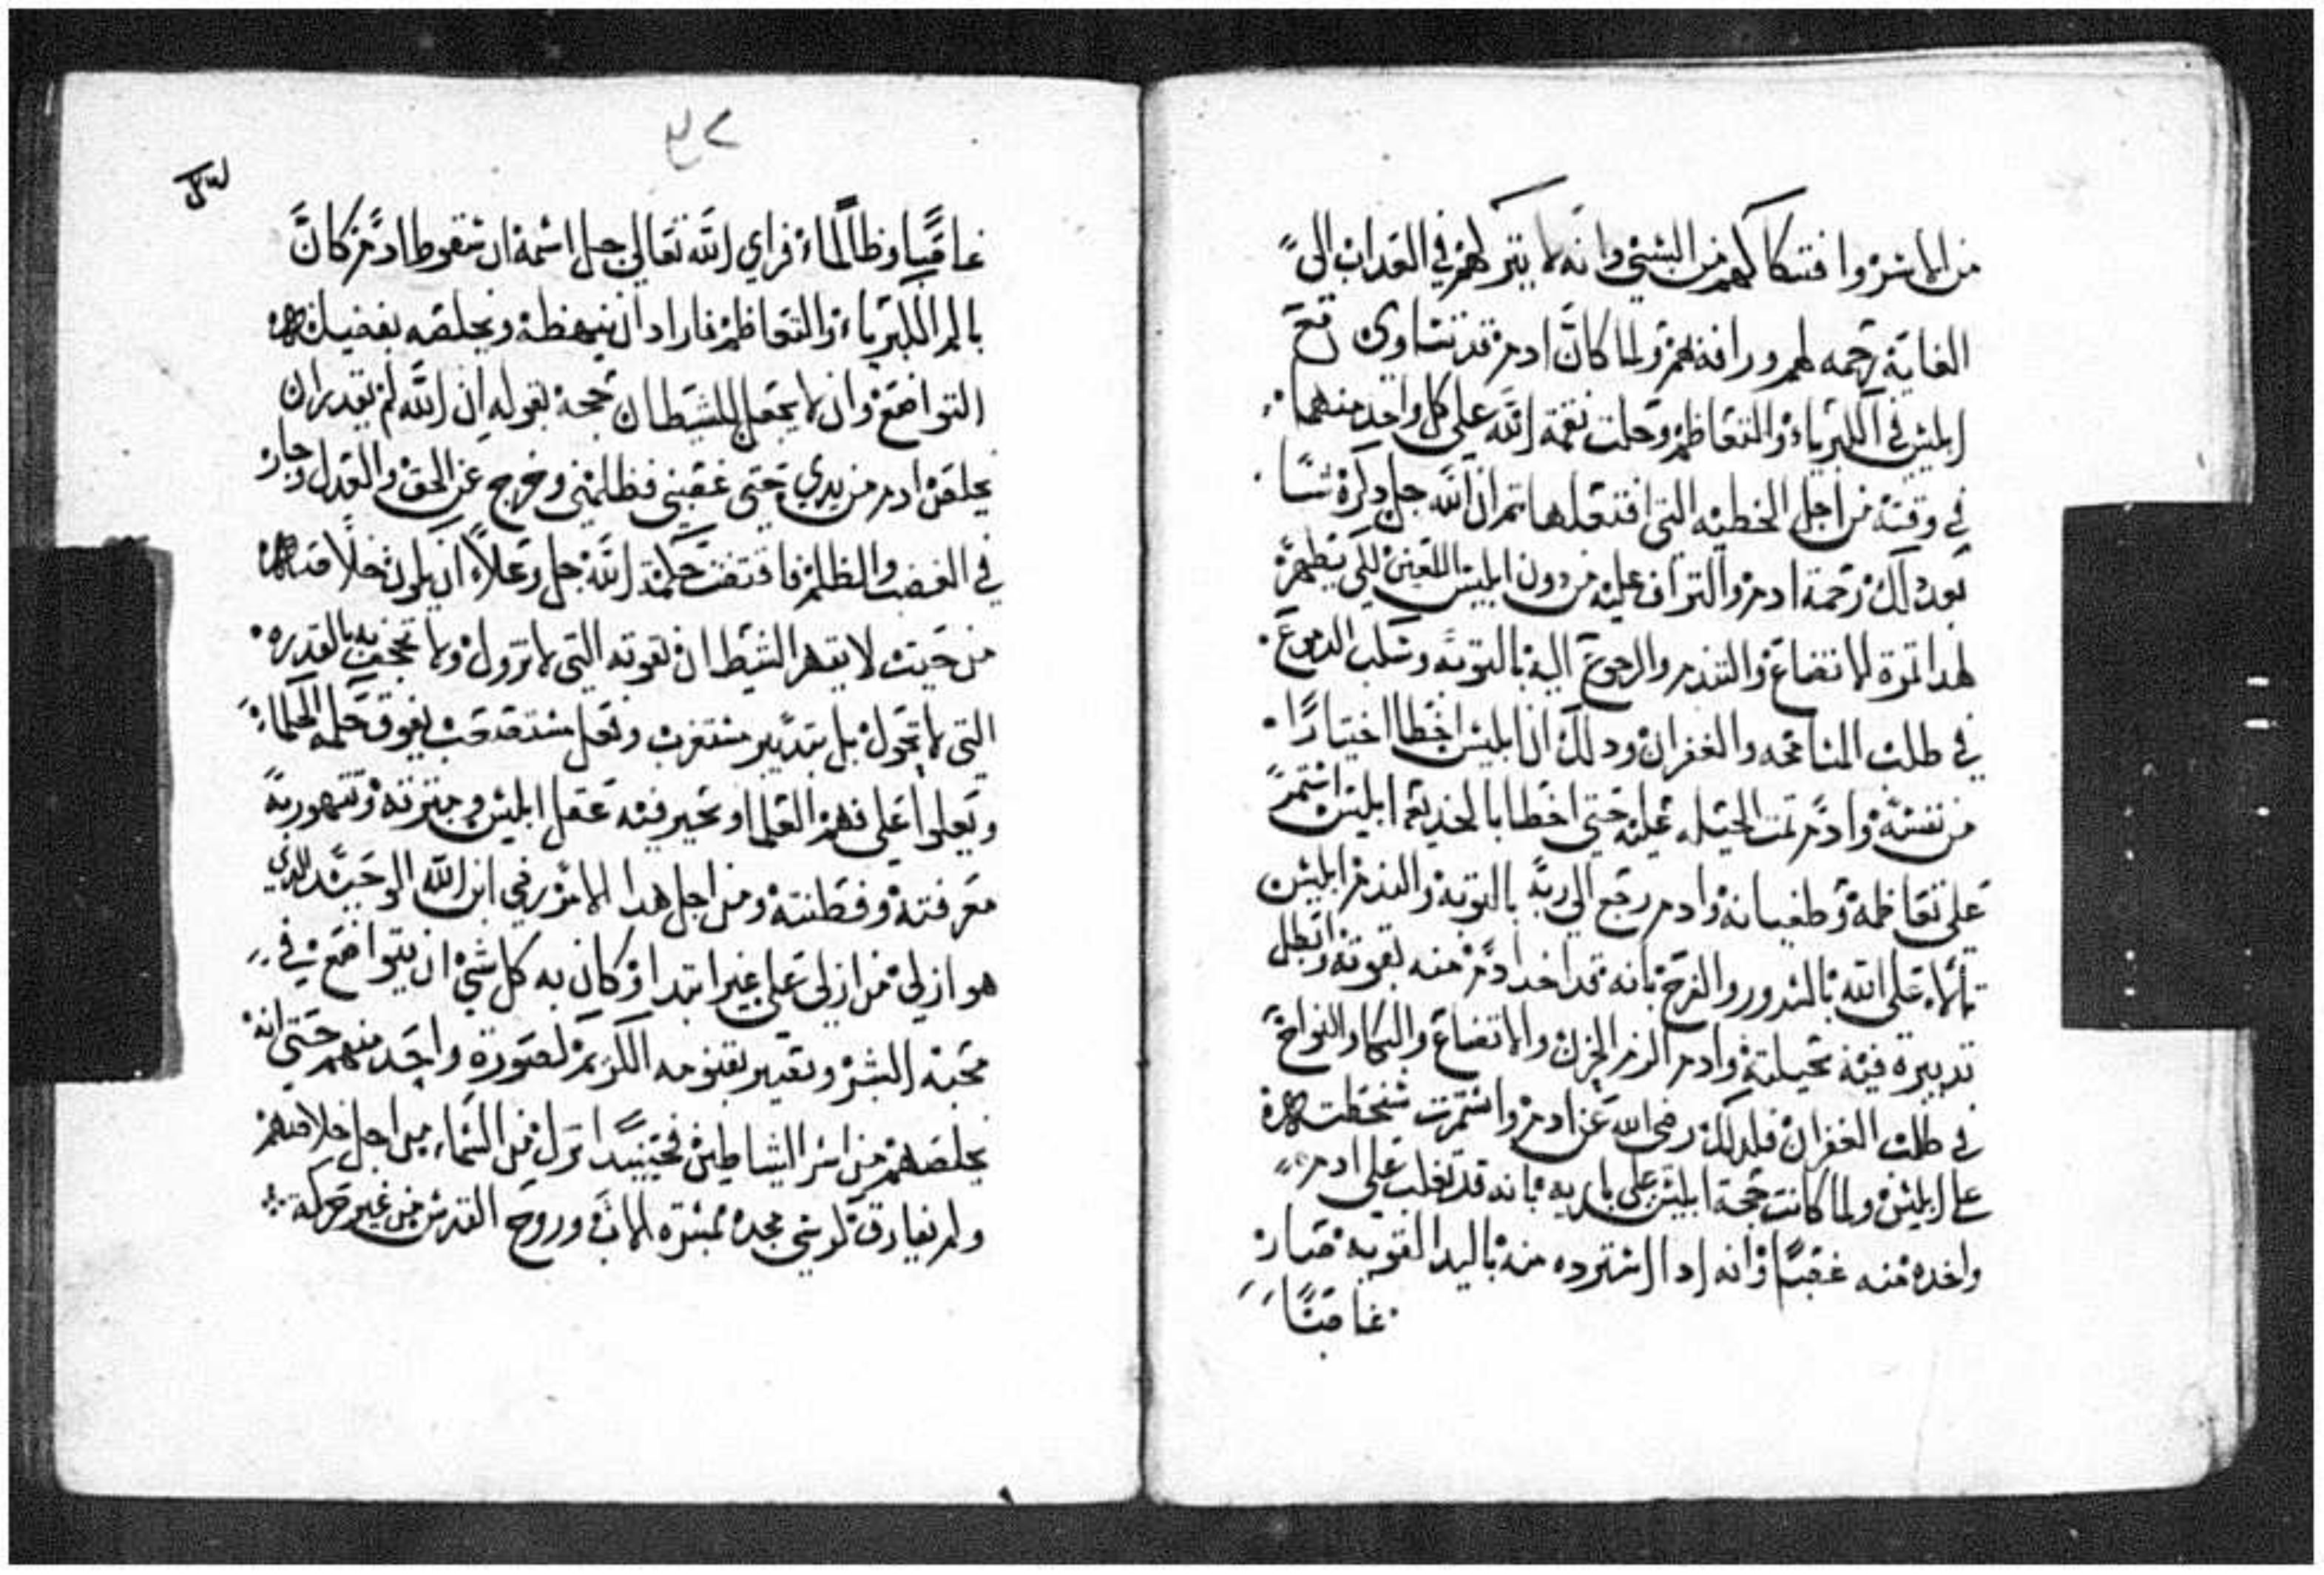 من الاسر وافتكاكهم من السبي وانه لا يتركهم في العداب الى
الغاية رحمه لهم ورافه بهم ولما كان ادم قد تساوى مع
ابليس في الكبرياء والتعاظم وحلت نقمة الله على كل واحد منهما
في وقته من اجل الخطيه التي افتعلها تم ان الله جل دكره شا
بعد دلك رحمة ادم والتراف عليه من دون ابليس اللعين لكي تظهر
لهدا تمرة الاتضاع والتندم والرجوع اليه بالتوبه وسكب الدموع
في طلب المسامحه والغفران ودلك ان ابليس اخطا اختيارًا
من نفسه وادم تمت الحيله عليه حتى اخطا بالخديعه ابليس استمر
على تعاظمه وطغيانه وادم رجع الى ربه بالتوبه والندم ابليس
على الله بالسرور والفرح بانه قد اخد ادم منه بقوته وابطل
تدبيره فيه بحيلته وادم الزم الحزن والاتضاع والبكا والنواح
في طلب الغفران فلدلك رضي الله عن ادم واستمرت سخطته
على ابليس ولما كانت حجة ابليس على باريه بانه قد تغلب على ادم
واخده منه غصبًا وانه ادا استرده منه باليد القويه صار
غاصبًا
٤٢
غاصبًا وظالمًا فراي الله تعالى جل اسمه ان سقوط ادم كان
بالم الكبرياء والتعاظم فاراد ان ينهضه ويخلصه بفضيلة
التواضع وان لا يجعل للشيطان حجة بقوله ان الله لم يقدر ان
يخلص ادم من يدي حتى غصبني فظلمني وخرج عن الحق والعدل وجار
في الغضب والظلم فاقتضت حكمة الله جل وعلا ان يكون خلاصه
من حيت لا يقهر الشيطان بقوته التي لا تزول ولا بالقدره
التي لا تحول بل بتدبير مستغرب وفعل مستصعب يفوق حكمه الحكماء
ويعلوا على فهم العلما وتحير فيه عقل ابليس و
معرفته وفطنته ومن اجل هدا الامر رضي ابن الله الوحيد الدي
هو ازلي من ازلي على غير ابتدا وكان به كل شي ان يتواضع في
محبة البشر ويصير بقنومه الكريم لصورة واحد منهم حتى انه
يخلصهم من اسر الشياطين فحينيدًا نزل من السماء من اجل خلاصهم
ولم يفارق كرسي مجده الاب وروح القدس من غير حركه